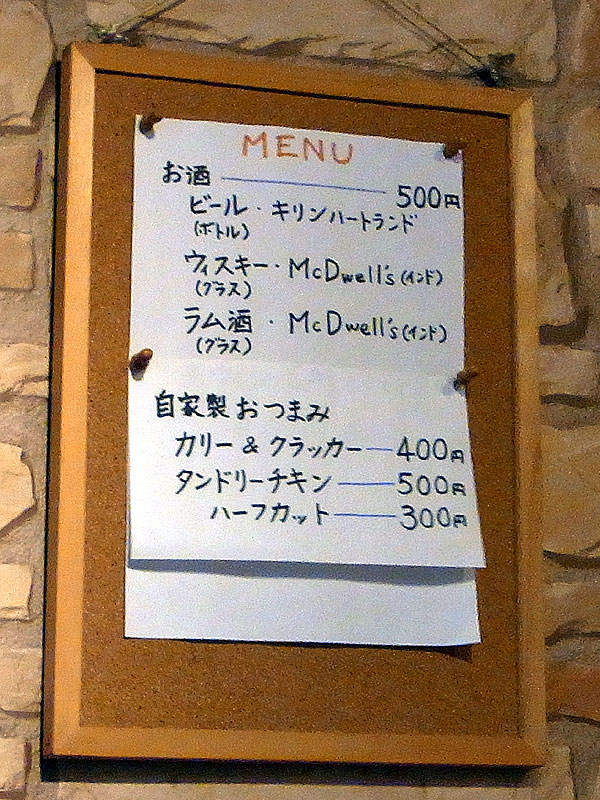 MENU
お酒 500円
ビール・キリンハートランド
(ボトル)
ウィスキー・McDwell's(インド)
(グラス)
ラム酒・McDwell's(インド)
(グラス)
自家製おつまみ
カリー&クラッカー 400円
タンドリーチキン 500円
ハーフカット 300円